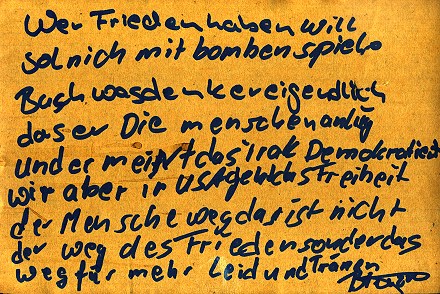 Wer Frieden haben will
sol nich mit bomben spiele
Busch wasdenkereigendlich
das er Die menschen anlüg
und er meint das irak Demokratieit
wir aber in USA freiheit
der Mensche weg das ist nicht
der weg des Friedensonder das
weg für mehr Leid und Tränen